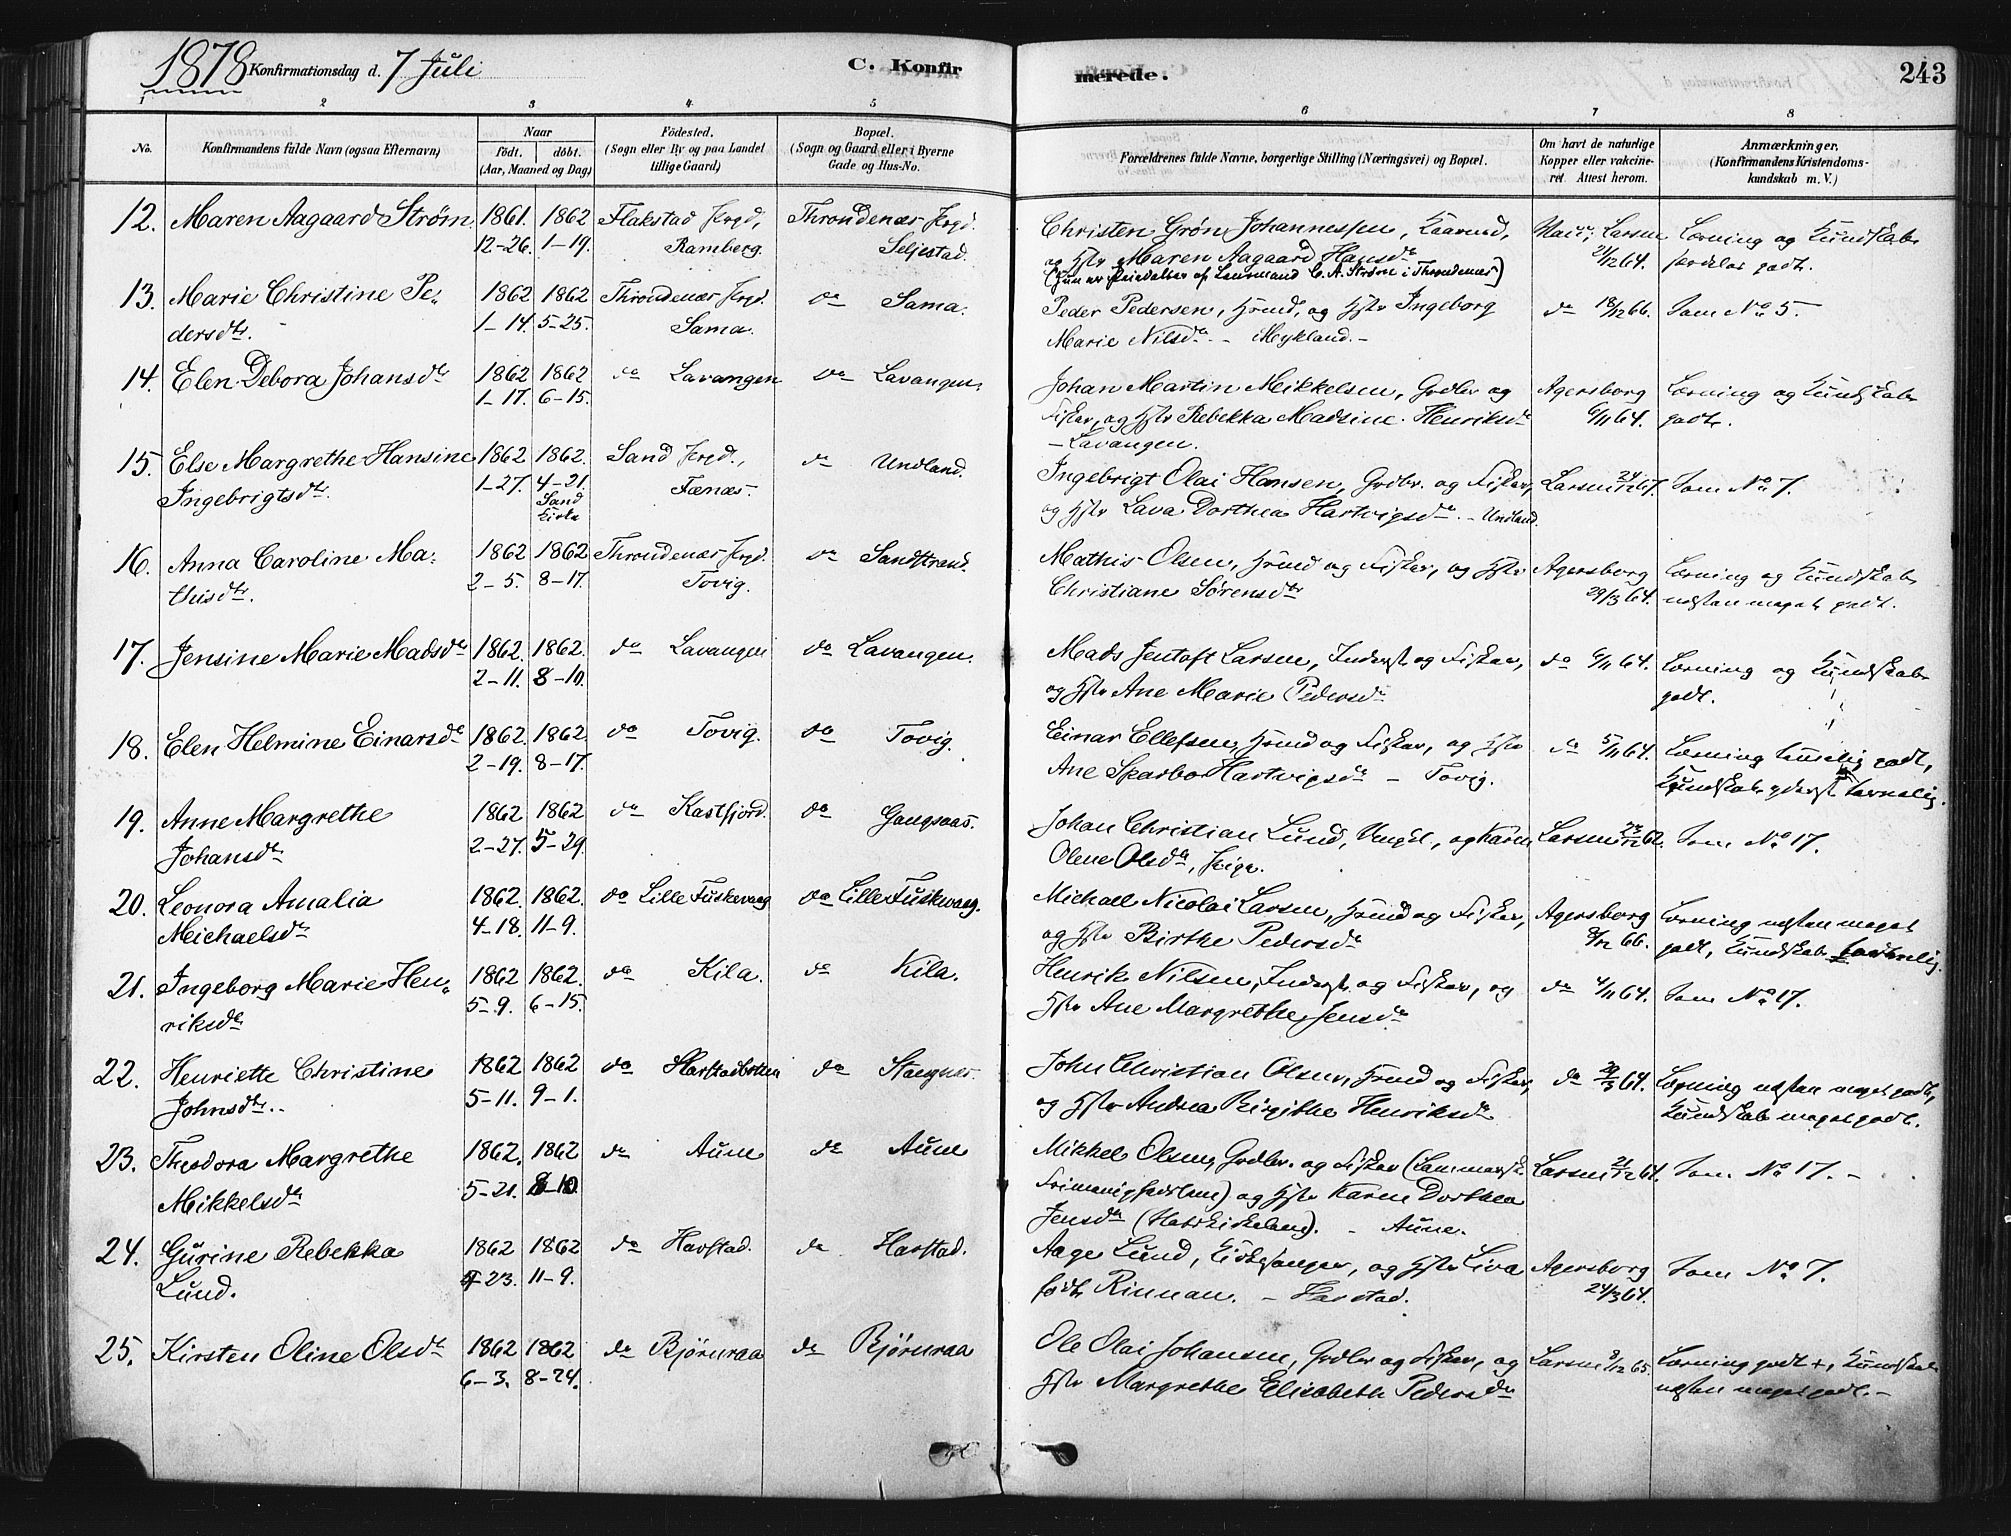 1878 Konfirmationsdag d. 7 Juli
C. Konfirmerede.
243
1 2 3 4 5 6 7 8
No.
Konfirmandens fulde Navn (ogsaa Efternavn)
Naar
født. døbt.
(Aar, Maaned og Dag)
Fødested.
(Sogn eller By og paa Landet
tillige Gaard)
Bopæl.
(Sogn og Gaard eller i Byerne
Gade og Hus-No.
Forældrenes fulde Navne, borgerlige Stilling (Næringsvei) og Bopæl.
Om havt de naturlige
Kopper eller vakcine-
ret. Attest herom.
Anmærkninger.
(Konfirmandens Kristendoms-
kundskab m. V.)
12. Maren Aagaard Strøm 1861. 1862 Flakstad Prgd, Throndenæs Prgd. Christen Grøn Johannessen, Larsen Læsning og Kundskab
12-26. 1-19. Ramberg. Seljestad. og Hstr Maren Aagaard Hansdr 21/12 64. særdeles godt.
(Hun er Pleiedatter af Lensmand C. A. Strøm i Throndenæs)
13. Marie Christine Pe- 1862 1862 Throndenæs Prgd. do Sama. Peder Pedersen, Hmnd, og Hstr Ingeborg do 18/12 66. Som No 5.
dersdtr. 1-14. 5-25. Sama. Marie Nilsdr. - Mykland. -
14. Elen Debora Johansdr 1862 1862 do Lavangen do Lavangen. Johan Martin Mikkelsen, Grdbr og Agersborg Læsning og Kundskab
1-17. 6-15. Fisker, og Hstr Rebekka Madsine Henriksdr 6/11 64. godt.
- Lavangen.
15. Else Margrethe Hansine 1862 1862. Sand Prgd., do Undland. Ingebrigt Olai Hansen, Grdbr. og Fisker, Larsen 24/12 67. Som No 7.
Ingebrigtsdtr. 1-27. 4-21. Fænæs. og Hstr Lava Dorthea Hartvigsdr. - Undland.
Sand
Kirke
16. Anna Caroline Ma- 1862 1862 Throndenæs Prgd. do Sandstrand. Mathis Olsen, Hmnd og Fisker, og Hstr Agersborg Læsning og Kundskab
thisdtr. 2-5. 8-17. Tovig. Christiane Sørensdtr 29/3 64. næsten meget godt.
17. Jensine Marie Madsdr 1862. 1862. do Lavangen do Lavangen. Mads Jentoft Larsen, Inderst og Fisker, do 6/11 64. Læsning og Kundskab
2-11. 8-10. og Hstr Ane Marie Pedersdr godt.
18. Elen Helmine Einarsdr 1862. 1862. do Tovig. do Tovig. Einar Ellefsen, Hmnd og Fisker, og Hstr do 5/11 64. Læsning temelig godt,
2-19. 8-17. Ane Sparbo Hartvigsdr - Tovig. Kundskab yderst tarvelig.
19. Anne Margrethe 1862 1862 do Kastfjord. do Gangsaas. Johan Christian Lund, Ungkl., og Karen Larsen 62. Som No 17.
Johansdtr 2-27. 5-29. Olene Olsdr, Pige.
20. Leonora Amalia 1862. 1862. do Lille Fuskevaag do Lille Fuskevaag. Michael Nicolai Larsen, Hmnd og Fisker, Agersborg Læsning næsten meget
Michaelsdr 4-18. 11-9. og Hstr Birthe Pedersdr 8/12 66. godt, Kundskab tarvelig.
21. Ingeborg Marie Hen- 1862 1862. do Kila. do Kila. Henrik Nilsen, Inderst og Fisker, og do 4/11 64. Som No 17.
riksdr 5-9. 6-15. Hstr Ane Margrethe Jensdr.
22. Henriette Christine 1862 1862 do Harstadbotten do Stangnes. John Christian Olsen, Hmnd og Fisker, do 29/3 64. Læsning næsten meget godt,
Johnsdtr. 5-11. 9-1. og Hstr Andrea Birgithe Henriksdr Kundskab meget godt.
23. Theodora Margrethe 1862. 1862 do Aune do Aune Mikkel Olsen, Grdbr. og Fisker Larsen 21/12 61. Som No 17. -
Mikkelsdr 5-21. 8-10. og Hstr Karen Dorthea
Jensdr - Aune.
24. Gurine Rebekka 1862 1862 do Harstad. do Harstad. Aage Lund, Kirkesanger, og Hstr Liva Agersborg Som No 7.
Lund. 23. 11-9. født Rinnan. - Harstad. 24/3 64.
25. Kirsten Oline Olsdr 1862 1862 do Bjørnraa do Bjørnraa Ole Olai Johansen, Grdbr og Fisker, og Larsen 8/12 65. Læsning godt +, Kundskab
6-3. 8-24. Hstr Margrethe Elisabeth Pedersdr næsten meget godt. -